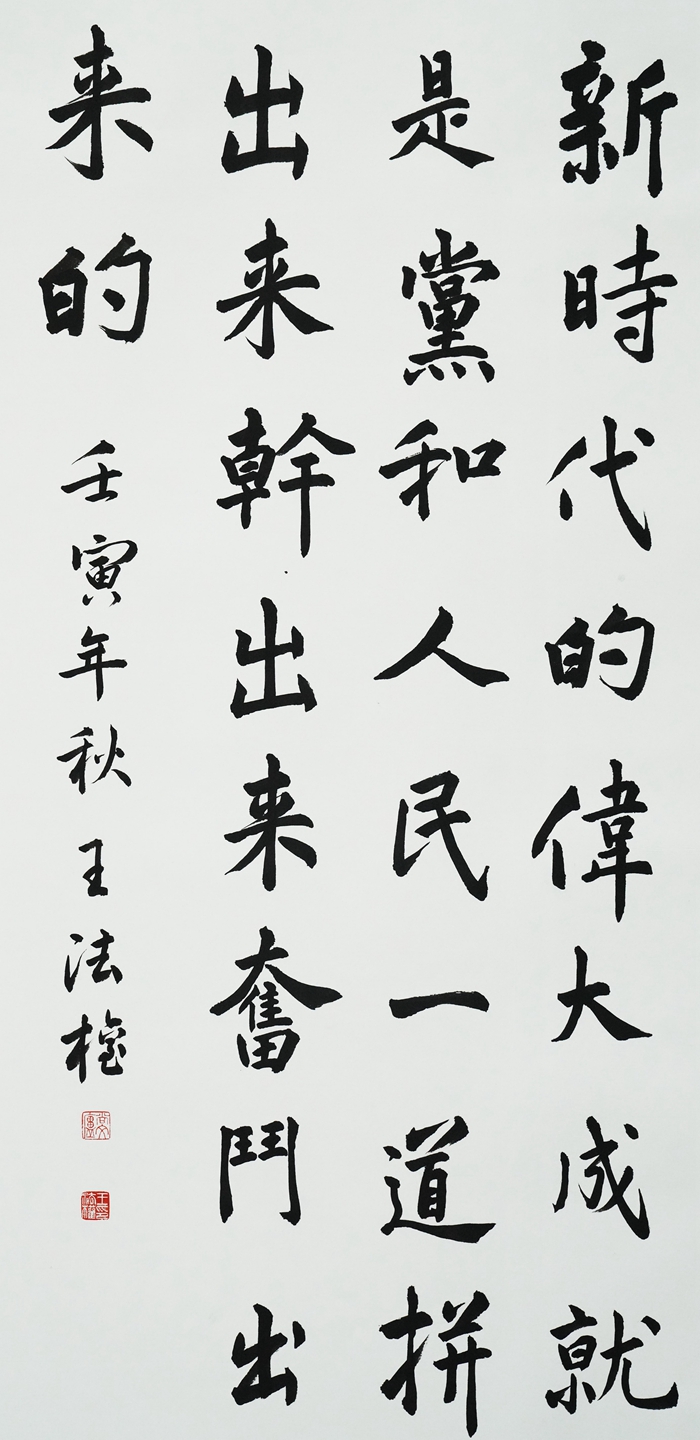 新時代的偉大成就
是黨和人民一道拼
出来幹出来奮鬥出
来的
壬寅年秋 王法